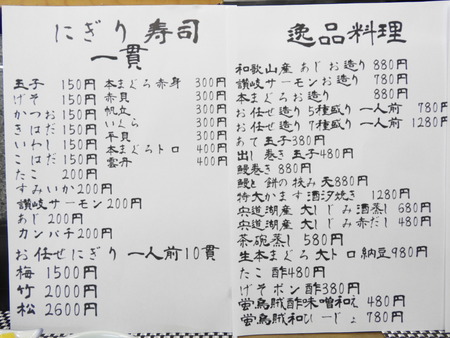 にぎり寿司
一貫
玉子 150円
げそ 150円
かつお 150円
きはだ 150円
いわし 150円
こはだ 150円
たこ 200円
すみいか 200円
讃岐サーモン 200円
あじ 200円
カンパチ 200円
本まぐろ赤身 300円
赤貝 300円
帆立 300円
いくら 300円
平貝 300円
本まぐろトロ 400円
雲丹 400円
お任せにぎり 一人前10貫
梅 1500円
竹 2000円
松 2600円
逸品料理
和歌山産 あじお造り 880円
讃岐サーモンお造り 780円
本まぐろお造り 880円
お任せ造り 5種盛り 一人前 780円
お任せ造り 7種盛り 一人前 1280円
あて玉子 380円
出し巻き玉子 480円
鰻巻き 880円
鰻と餅の挟み天 880円
特大かます酒汐焼き 1280円
宍道湖産 大しじみ酒蒸し 680円
宍道湖産 大しじみ赤だし 480円
茶碗蒸し 580円
生本まぐろ大トロ納豆 980円
たこ酢 480円
げそポン酢 380円
蛍烏賊酢味噌和え 480円
蛍烏賊和ひーじょ 780円